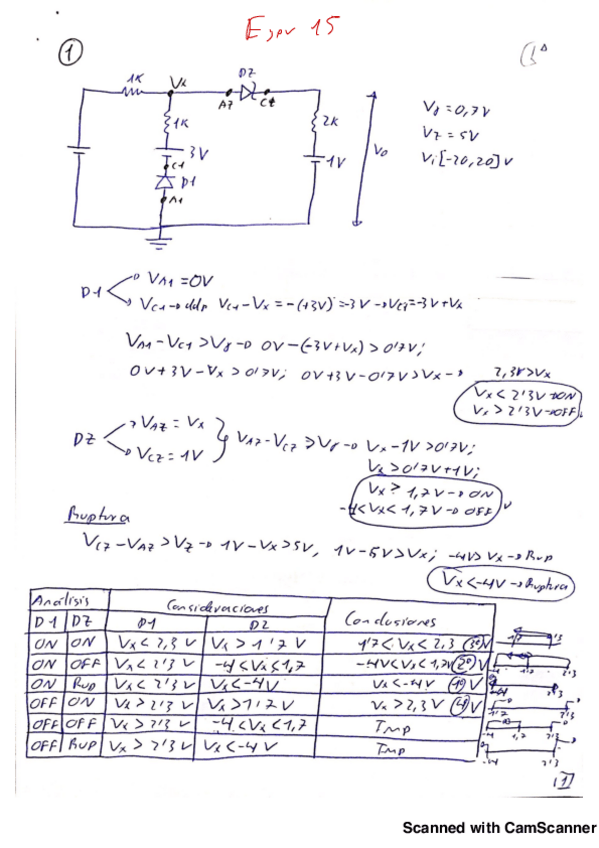 Ejer 15
1
1K
Vx
DZ
AZ
CZ
1K
3V
C1
D1
A1
2K
1V
Vo
Vγ = 0,7V
VZ = 5V
Vi[-20,20]V
D1
VA1 = 0V
VC1 → ddp VC1 - Vx = -(+3V) = -3V → VC1 = -3V + Vx
VA1 - VC1 > Vγ → 0V - (-3V + Vx) > 0'7V;
0V + 3V - Vx > 0'7V; 0V + 3V - 0'7V > Vx → 2,3V > Vx
Vx < 2'3V → ON
Vx > 2'3V → OFF
DZ
VAZ = Vx
VCZ = 1V
VAZ - VCZ ≥ Vγ → Vx - 1V > 0'7V;
Vx > 0'7V + 1V;
Vx ≥ 1,7V → ON
-4 < Vx < 1,7V → OFF
Ruptura
VCZ - VAZ > VZ → 1V - Vx > 5V, 1V - 5V > Vx; -4V > Vx → Rup
Vx < -4V → Ruptura
Análisis Consideraciones Conclusiones
D1 DZ D1 DZ
ON ON Vx < 2,3 V Vx > 1'7 V 1'7 < Vx < 2,3 3º V
ON OFF Vx < 2'3 V -4 < Vx < 1,7 -4V < Vx < 1,7V 2º V
ON Rup Vx < 2'3 V Vx < -4V Vx < -4V 1º V
OFF ON Vx > 2'3 V Vx > 1'7 V Vx > 2,3 V 4º V
OFF OFF Vx > 2'3 V -4 < Vx < 1,7 Imp
OFF Rup Vx > 2'3 V Vx < -4 V Imp
1
Scanned with CamScanner